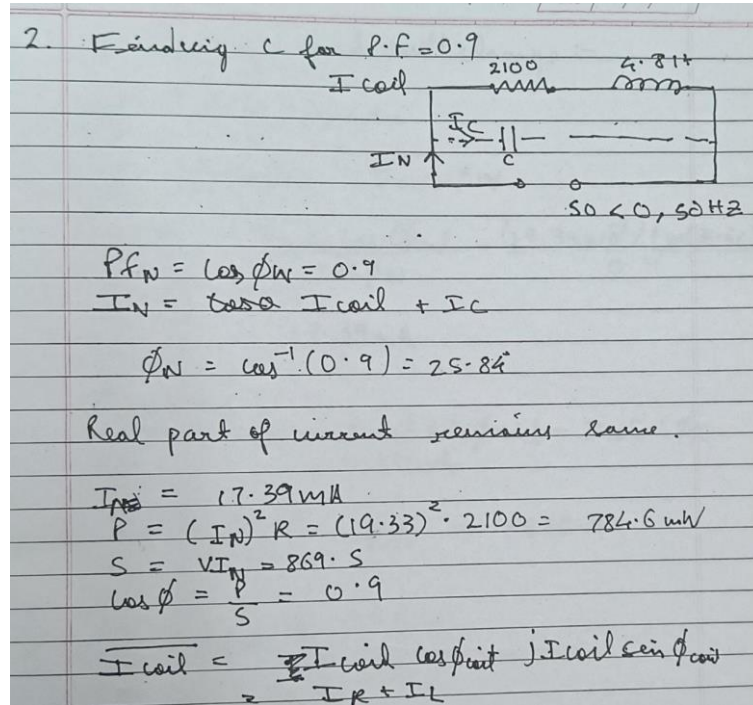 2. Finding C for P.F = 0.9
2100 4.8H
I coil
IC
C
IN
50 < 0, 50 HZ
PfN = cos ϕN = 0.9
IN = I coil + IC
ϕN = cos⁻¹(0.9) = 25.84°
Real part of current remains same.
IN = 17.39 mA
P = (IN)² R = (19.33)² · 2100 = 784.6 mW
S = VIN = 869.5
cos ϕ = P/S = 0.9
I coil = I coil cos ϕcoil jI coil sin ϕcoil
= IR + IL